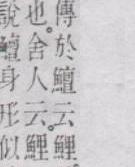 傳於鱣云鯉
也。舍人云。鯉
說鱣身形似